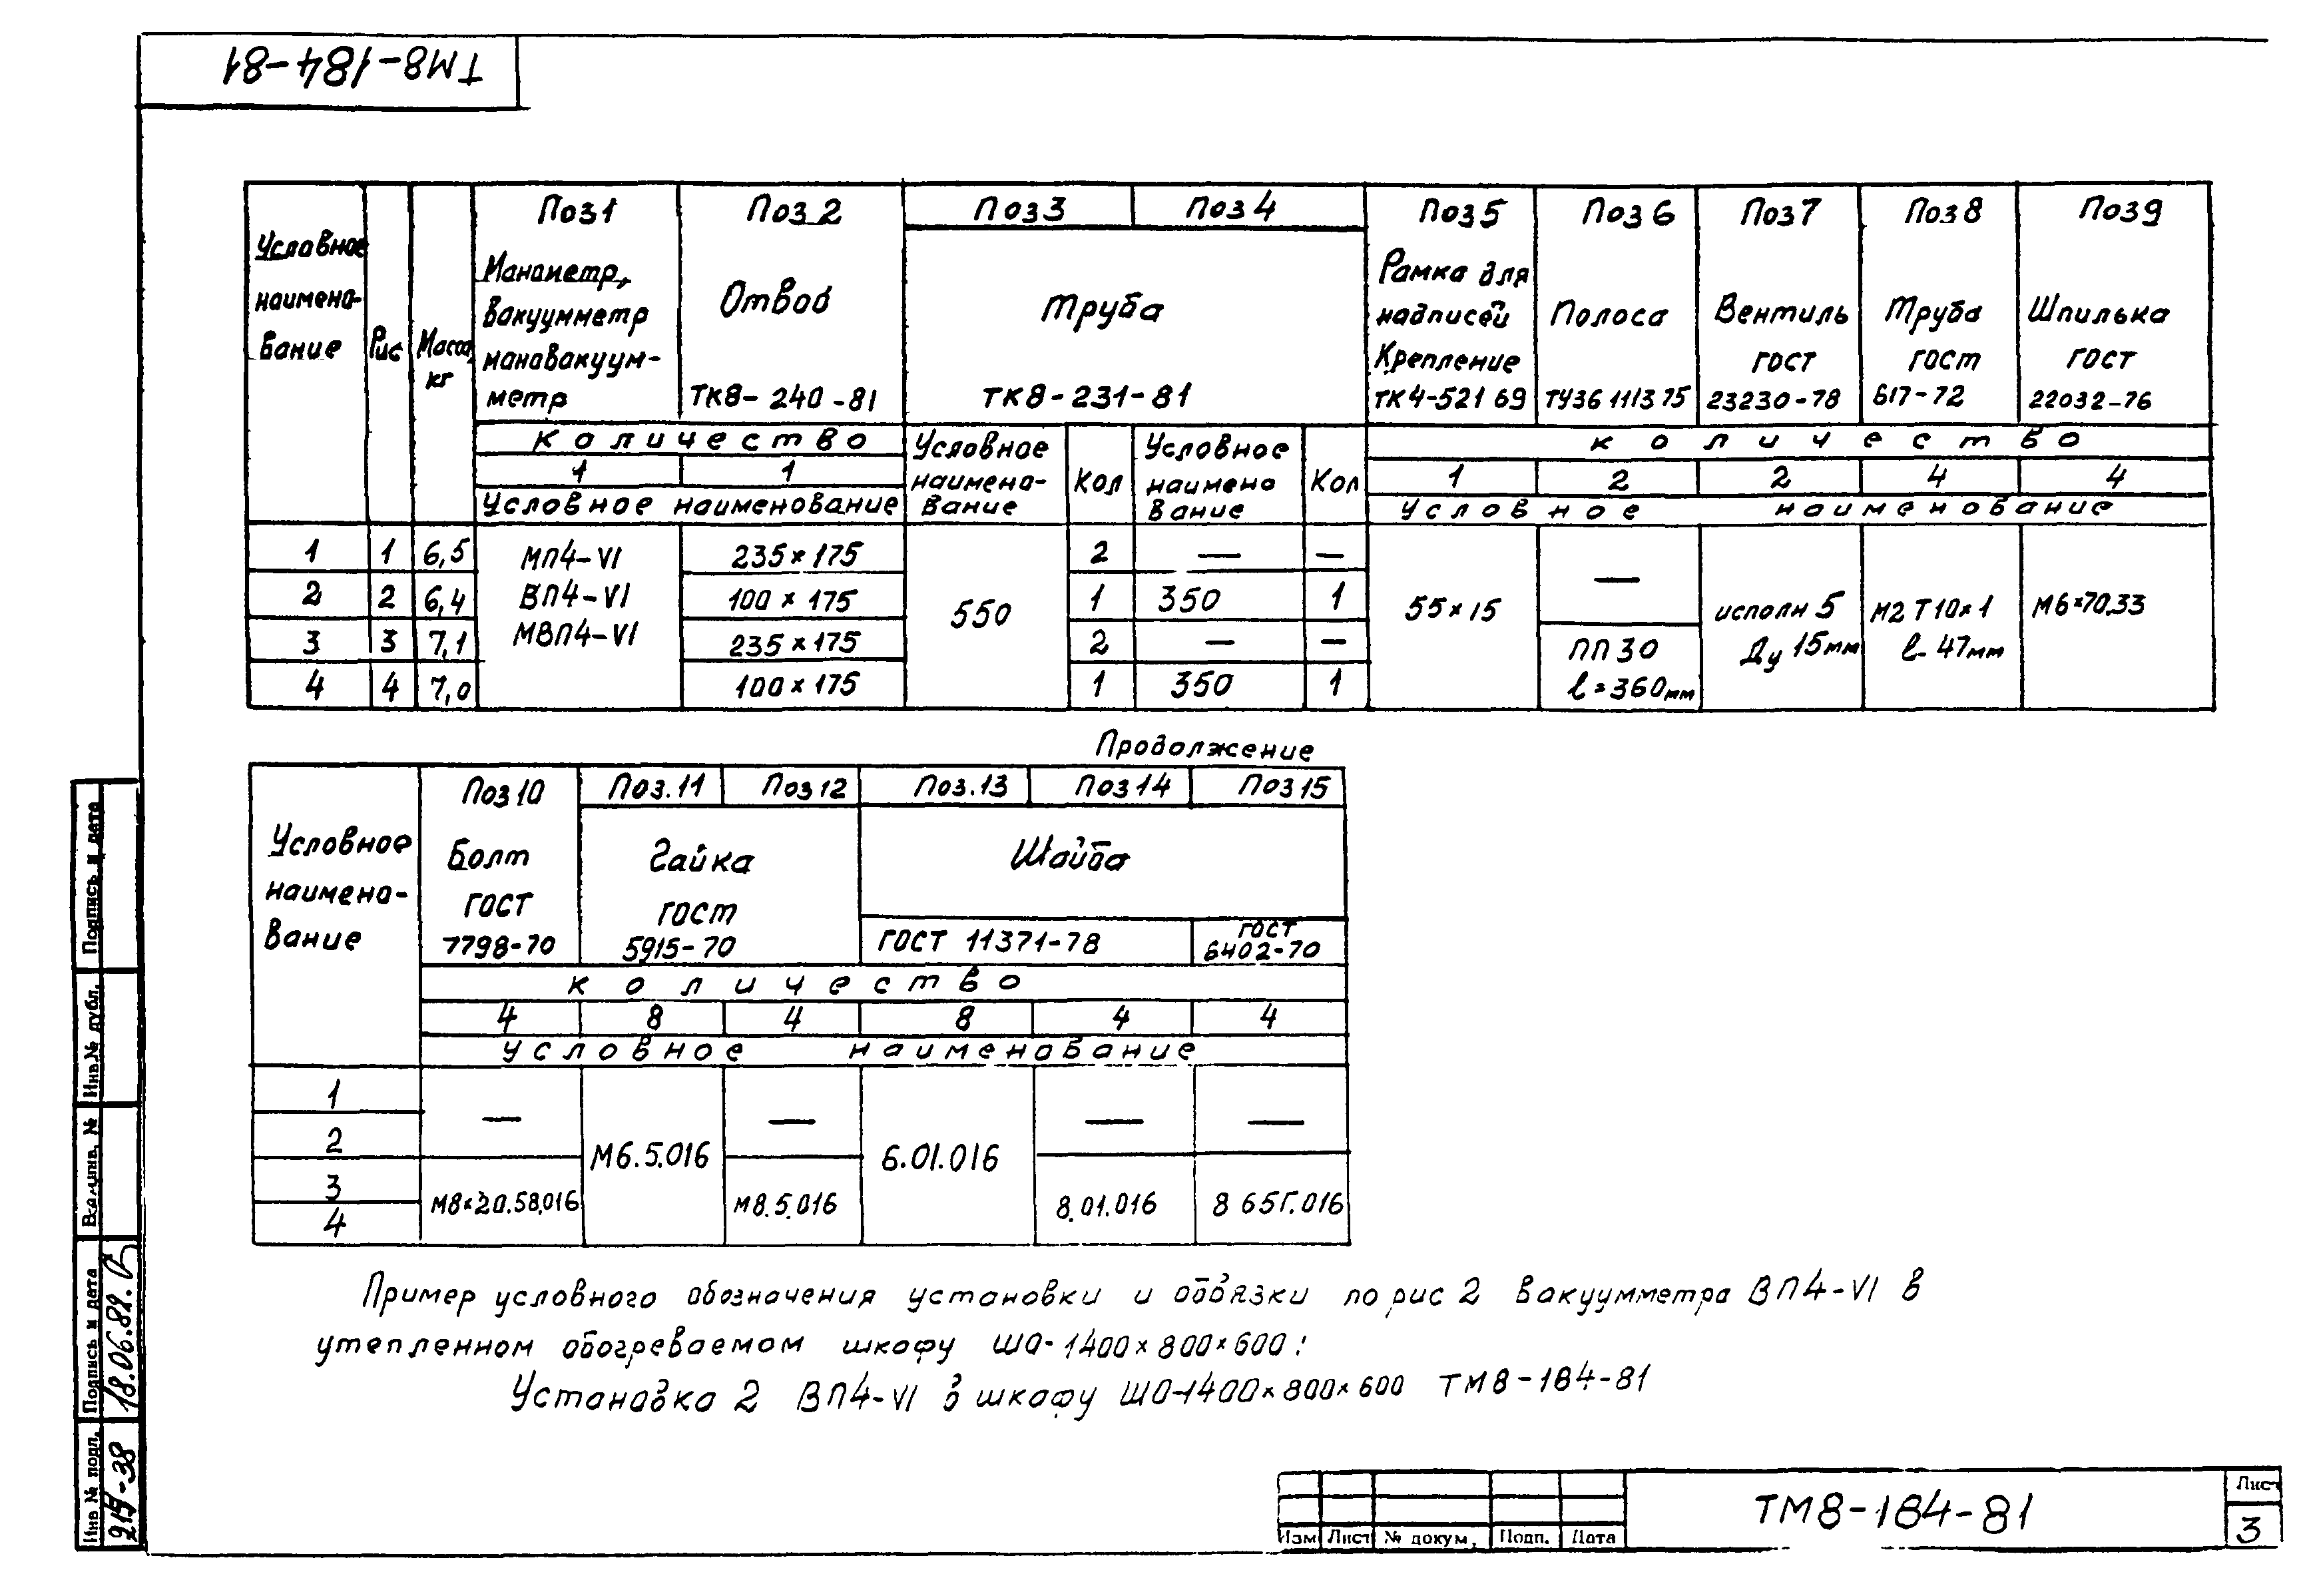 ТМ8-184-81
Условное наимено-вание
Рис
Масса, кг
Поз1
Манометр,
вакуумметр
мановакуум-
метр
Поз2
Отвод
ТК8-240-81
Поз3
Поз4
Труба
ТК8-231-81
Поз5
Рамка для
надписей
Крепление
ТК4-521 69
Поз6
Полоса
ТУ36 1113 75
Поз7
Вентиль
ГОСТ
23230-78
Поз8
Труба
ГОСТ
617-72
Поз9
Шпилька
ГОСТ
22032-76
Количество
1 1
Условное наименование
Условное наимено-вание
Кол
Условное наимено вание
Кол
Количество
1 2 2 4 4
Условное наименование
1 1 6,5 МП4-VI 235×175 2 — —
2 2 6,4 ВП4-VI 100×175 1 350 1
3 3 7,1 МВП4-VI 235×175 2 — —
4 4 7,0 100×175 1 350 1
550
55×15
—
ПП 30
ℓ=360мм
исполн 5
Ду 15мм
М2 Т 10×1
ℓ-47мм
М6×70.33
Продолжение
Условное
наимено-
вание
Поз10
Болт
ГОСТ
7798-70
Поз.11
Поз12
Гайка
ГОСТ
5915-70
Поз.13
Поз14
Поз15
Шайба
ГОСТ 11371-78
ГОСТ
6402-70
Количество
4 8 4 8 4 4
Условное наименование
1
2
3
4
— — — —
М6.5.016
6.01.016
М8×20.58.016
М8.5.016
8.01.016
8 65Г.016
Пример условного обозначения установки и обвязки по рис 2 вакуумметра ВП4-VI в
утепленном обогреваемом шкафу ШО-1400×800×600:
Установка 2 ВП4-VI в шкафу ШО-1400×800×600 ТМ8-184-81
Подпись и дата
Инв.№ дубл.
Взам.инв. №
Подпись и дата
18.06.82.
Инв № подл.
215-38
Изм Лист № докум. Подп. Дата
ТМ8-184-81
Лист
3